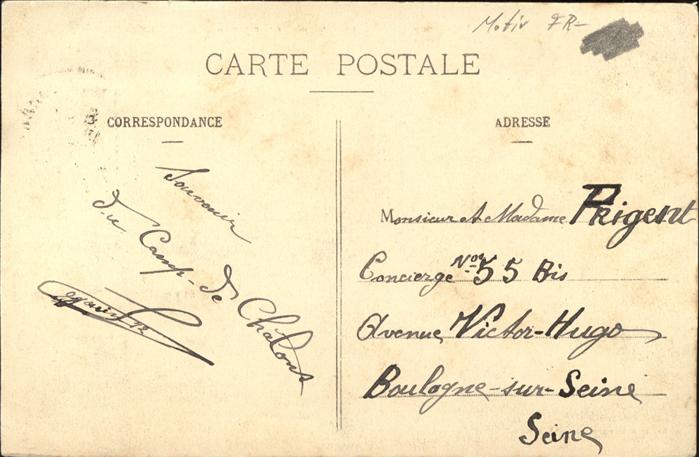 Motiv FR-
CARTE POSTALE
CORRESPONDANCE
Souvenir
du Camp-de Châlons
ADRESSE
Monsieur et Madame Prigent
Concierge Nos 55 Bis
Avenue Victor-Hugo
Boulogne-sur-Seine
Seine